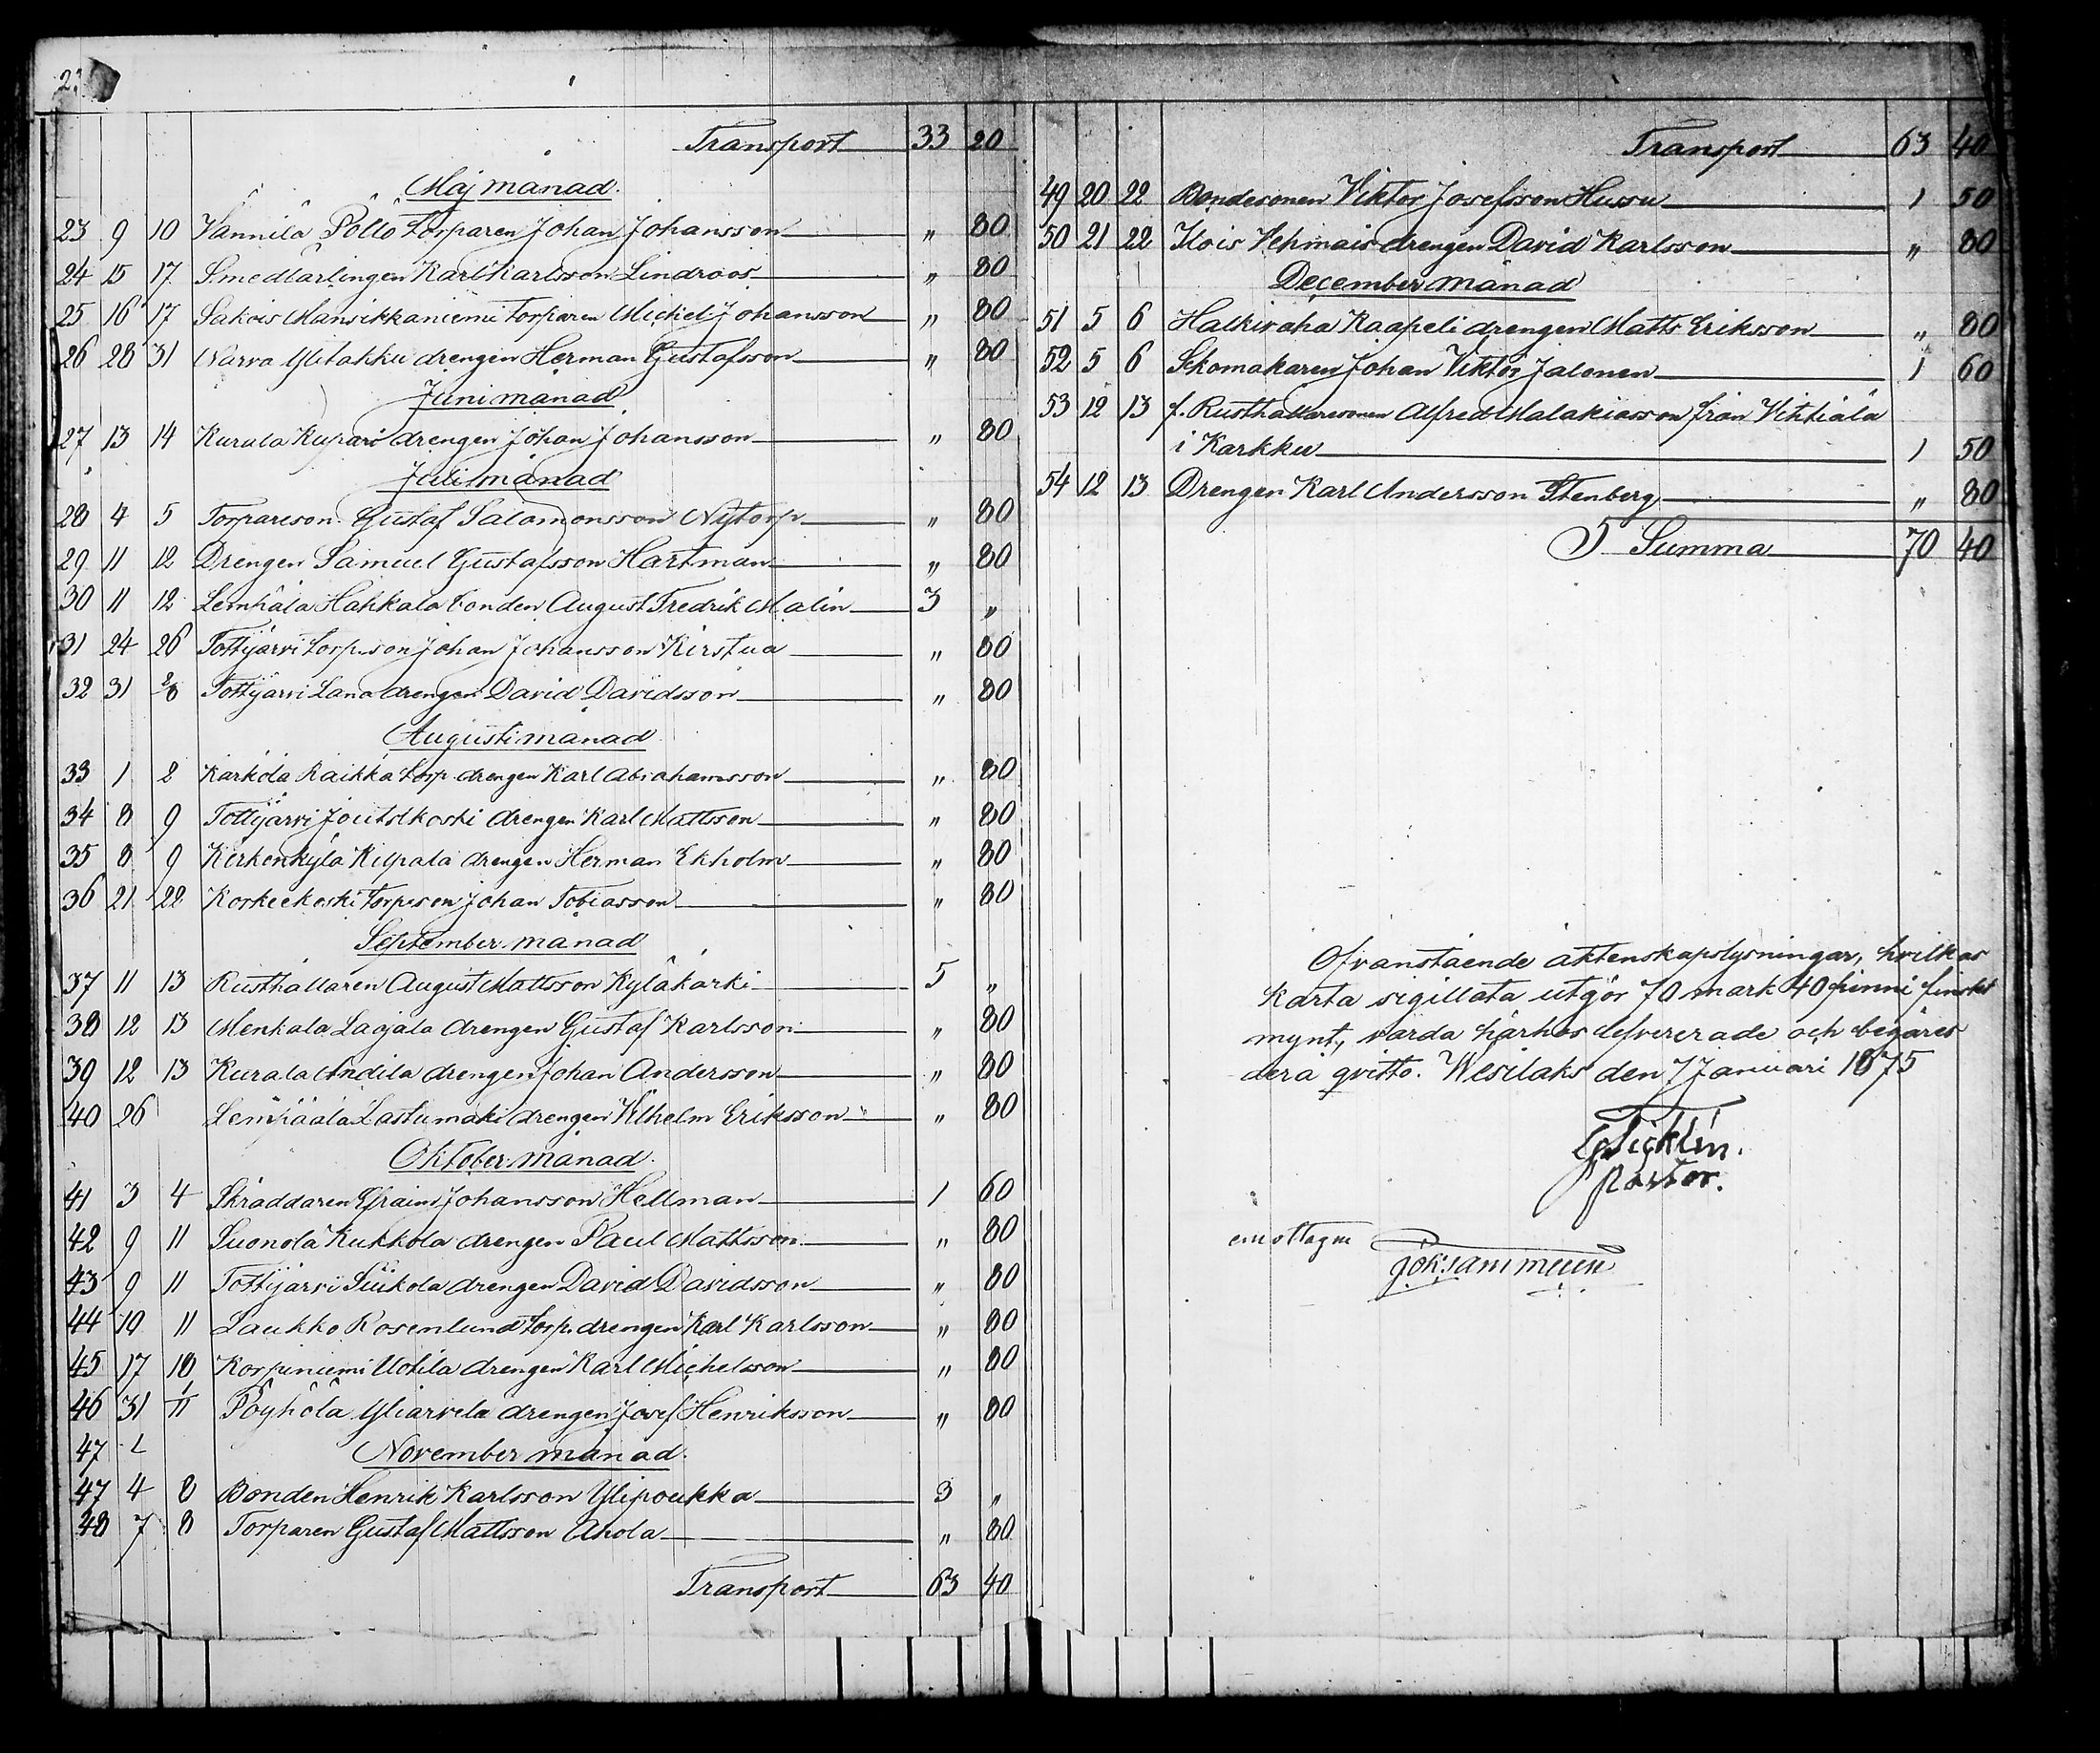 Transport 33 20
Maj månad.
23 9 10 Vännilä Pöllö torparen Johan Johansson „ 80
24 15 17 Smedlärlingen Karl Karlsson Lindroos „ 80
25 16 17 Sakois Mansikkaniemi torparen Mickel Johansson „ 80
26 28 31 Narva Ylitakku drengen Herman Gustafsson „ 80
Juni månad
27 13 14 Kurala Kupari drengen Johan Johansson „ 80
Juli månad
28 4 5 Torpareson Gustaf Salomonsson Nytorp „ 80
29 11 12 Drengen Samuel Gustafsson Hartman „ 80
30 11 12 Lemhälä Hahkala bonden August Fredrik Malin 3 „
31 24 26 Tottijärvi torp.son Johan Johansson Kirstua „ 80
32 31 2/8 Tottijärvi Lana drengen David Davidsson „ 80
Augusti månad
33 1 2 Karkola Raikka torp. drengen Karl Abrahamsson „ 80
34 8 9 Tottijärvi Joutsikoski drengen Karl Mattsson „ 80
35 8 9 Kirkonkylä Kilpala drengen Herman Ekholm „ 80
36 21 22 Korkeekoski torp.son Johan Tobiasson „ 80
September månad
37 11 13 Rusthållaren August Mattsson Kyläkärki 5 „
38 12 13 Menkala Laojala drengen Gustaf Karlsson „ 80
39 12 13 Kurala Andila drengen Johan Andersson „ 80
40 26 Lempäälä Lastumäki drengen Vilhelm Eriksson „ 80
Oktober månad.
41 3 4 Skräddaren Efraim Johansson Hellman 1 60
42 9 11 Suonola Kukkola drengen Paul Mattsson „ 80
43 9 11 Tottijärvi Siukola drengen David Davidsson „ 80
44 10 11 Laukko Rosenlund torp. drengen Karl Karlsson „ 80
45 17 18 Korpiniemi Uotila drengen Karl Michelsson „ 80
46 31 1/11 Pöyhölä Yliarvela drengen Josef Henriksson „ 80
47
November månad.
47 4 8 Bonden Henrik Karlsson Ylipoukka 3 „
48 7 8 Torparen Gustaf Mattsson Ahola „ 80
Transport 63 40
Transport 63 40
49 20 22 Bondesonen Viktor Josefsson Hussu 1 50
50 21 22 Ilois Vehmais drengen David Karlsson „ 80
December månad
51 5 6 Halkivaha Kaapeli drengen Matts Eriksson „ 80
52 5 6 Skomakaren Johan Viktor Jalonen 1 60
53 12 13 f. Rusthållaresonen Alfred Malakiasson från Vihtiälä
i Karkku 1 50
54 12 13 Drengen Karl Andersson Stenberg „ 80
Summa 70 40
Ofvanstående äktenskapslysningar, hvilkas
karta sigillata utgör 70 mark 40 penni finskt
mynt, varda härhos lefvererade och begäres
derå qvitto. Wesilaks den 7 Januari 1875
pastor.
emottagne